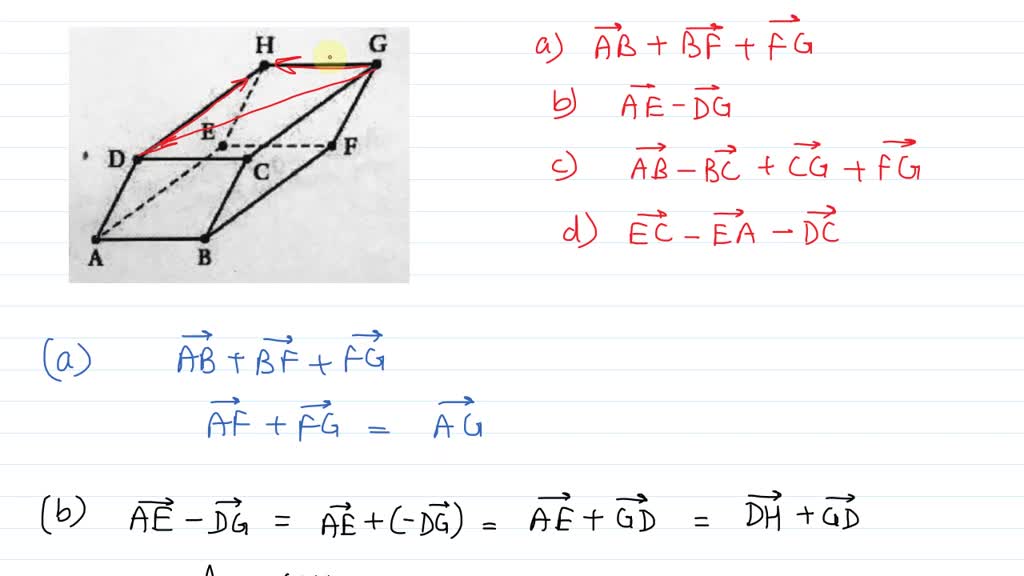 H G
E F
D C
A B
a) $\overrightarrow{AB} + \overrightarrow{BF} + \overrightarrow{FG}$
b) $\overrightarrow{AE} - \overrightarrow{DG}$
c) $\overrightarrow{AB} - \overrightarrow{BC} + \overrightarrow{CG} + \overrightarrow{FG}$
d) $\overrightarrow{EC} - \overrightarrow{EA} - \overrightarrow{DC}$
(a) $\overrightarrow{AB} + \overrightarrow{BF} + \overrightarrow{FG}$
$\overrightarrow{AF} + \overrightarrow{FG} = \overrightarrow{AG}$
(b) $\overrightarrow{AE} - \overrightarrow{DG} = \overrightarrow{AE} + (-\overrightarrow{DG}) = \overrightarrow{AE} + \overrightarrow{GD} = \overrightarrow{DH} + \overrightarrow{GD}$